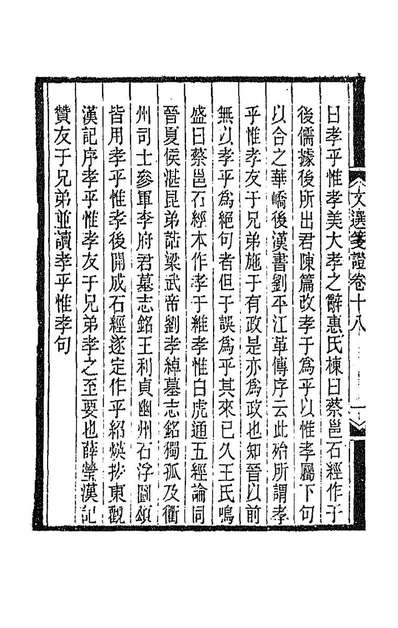 文選箋證卷十八
曰孝乎惟孝美大孝之辭惠氏棟曰蔡邕石經作于
後儒據後所出君陳篇改孝于為乎以惟孝屬下句
以合之華嶠後漢書劉平江革傳序云此殆所謂孝
乎惟孝友于兄弟施于有政是亦為政也知晉以前
無以孝乎為絕句者但于誤為乎其來已久王氏鳴
盛曰蔡邕石經本作孝于維孝惟白虎通五經論同
晉夏侯湛昆弟誥梁武帝劉孝綽墓志銘獨孤及衢
州司士參軍李府君墓志銘王利貞幽州石浮圖頌
皆用孝乎惟孝後開成石經遂定作乎紹煐抄東觀
漢記序孝乎惟孝友于兄弟孝之至要也薛瑩漢記
贊友于兄弟並讀孝乎惟孝句